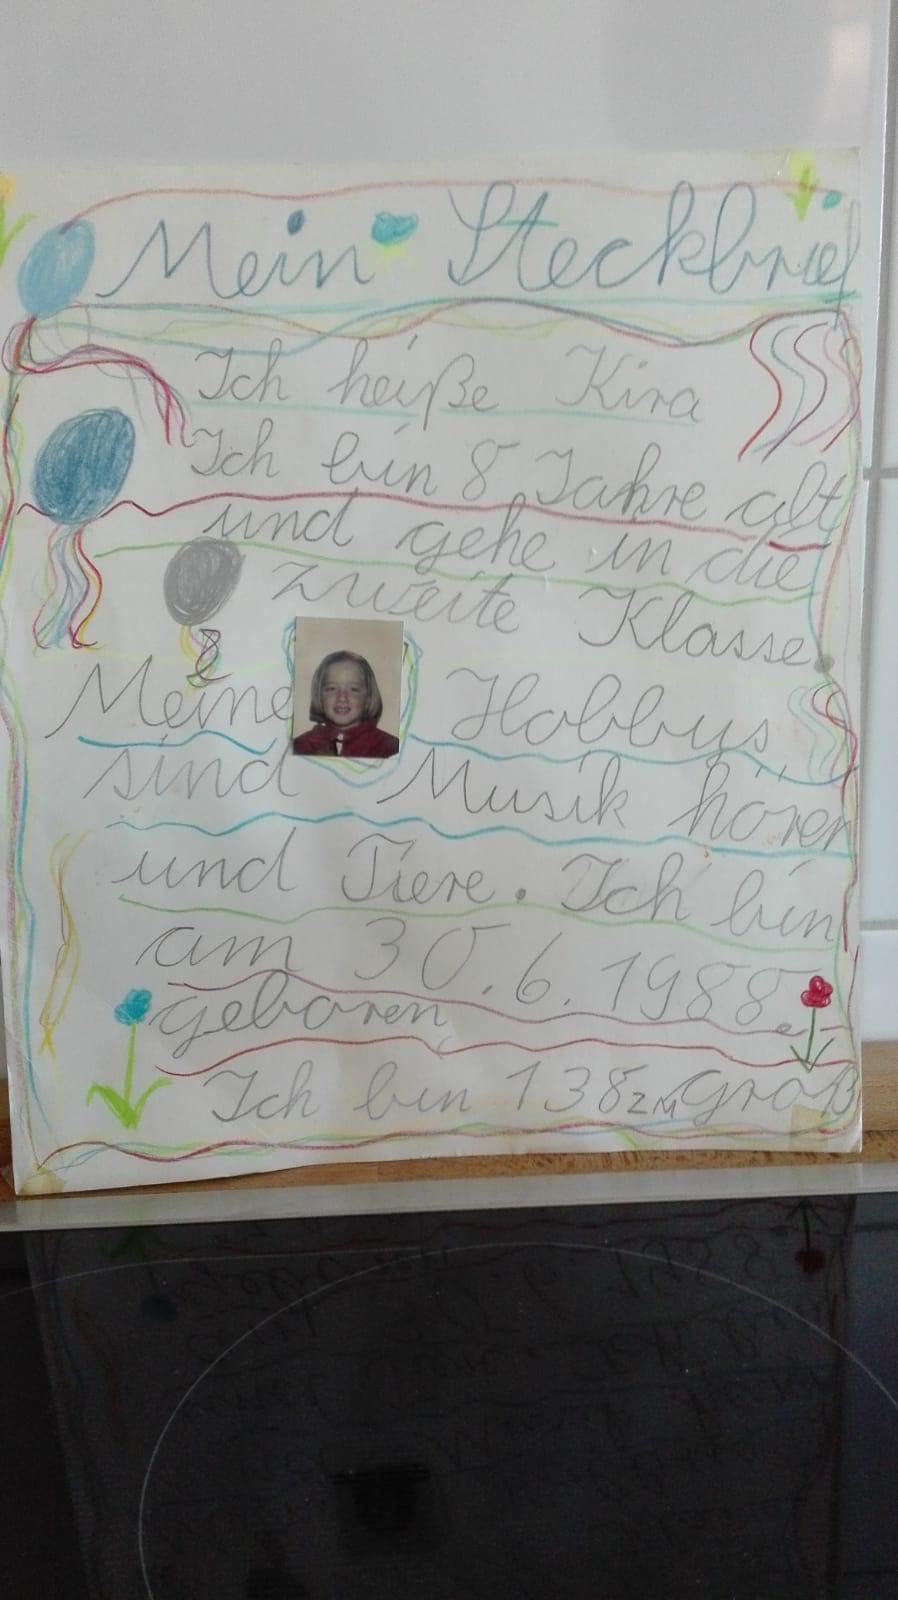 Mein Steckbrief
Ich heiße Kira
Ich bin 8 Jahre alt
und gehe in die
zweite Klasse.
Meine Hobbys
sind Musik hören
und Tiere. Ich bin
am 30.6.1988
geboren
Ich bin 138 zm groß